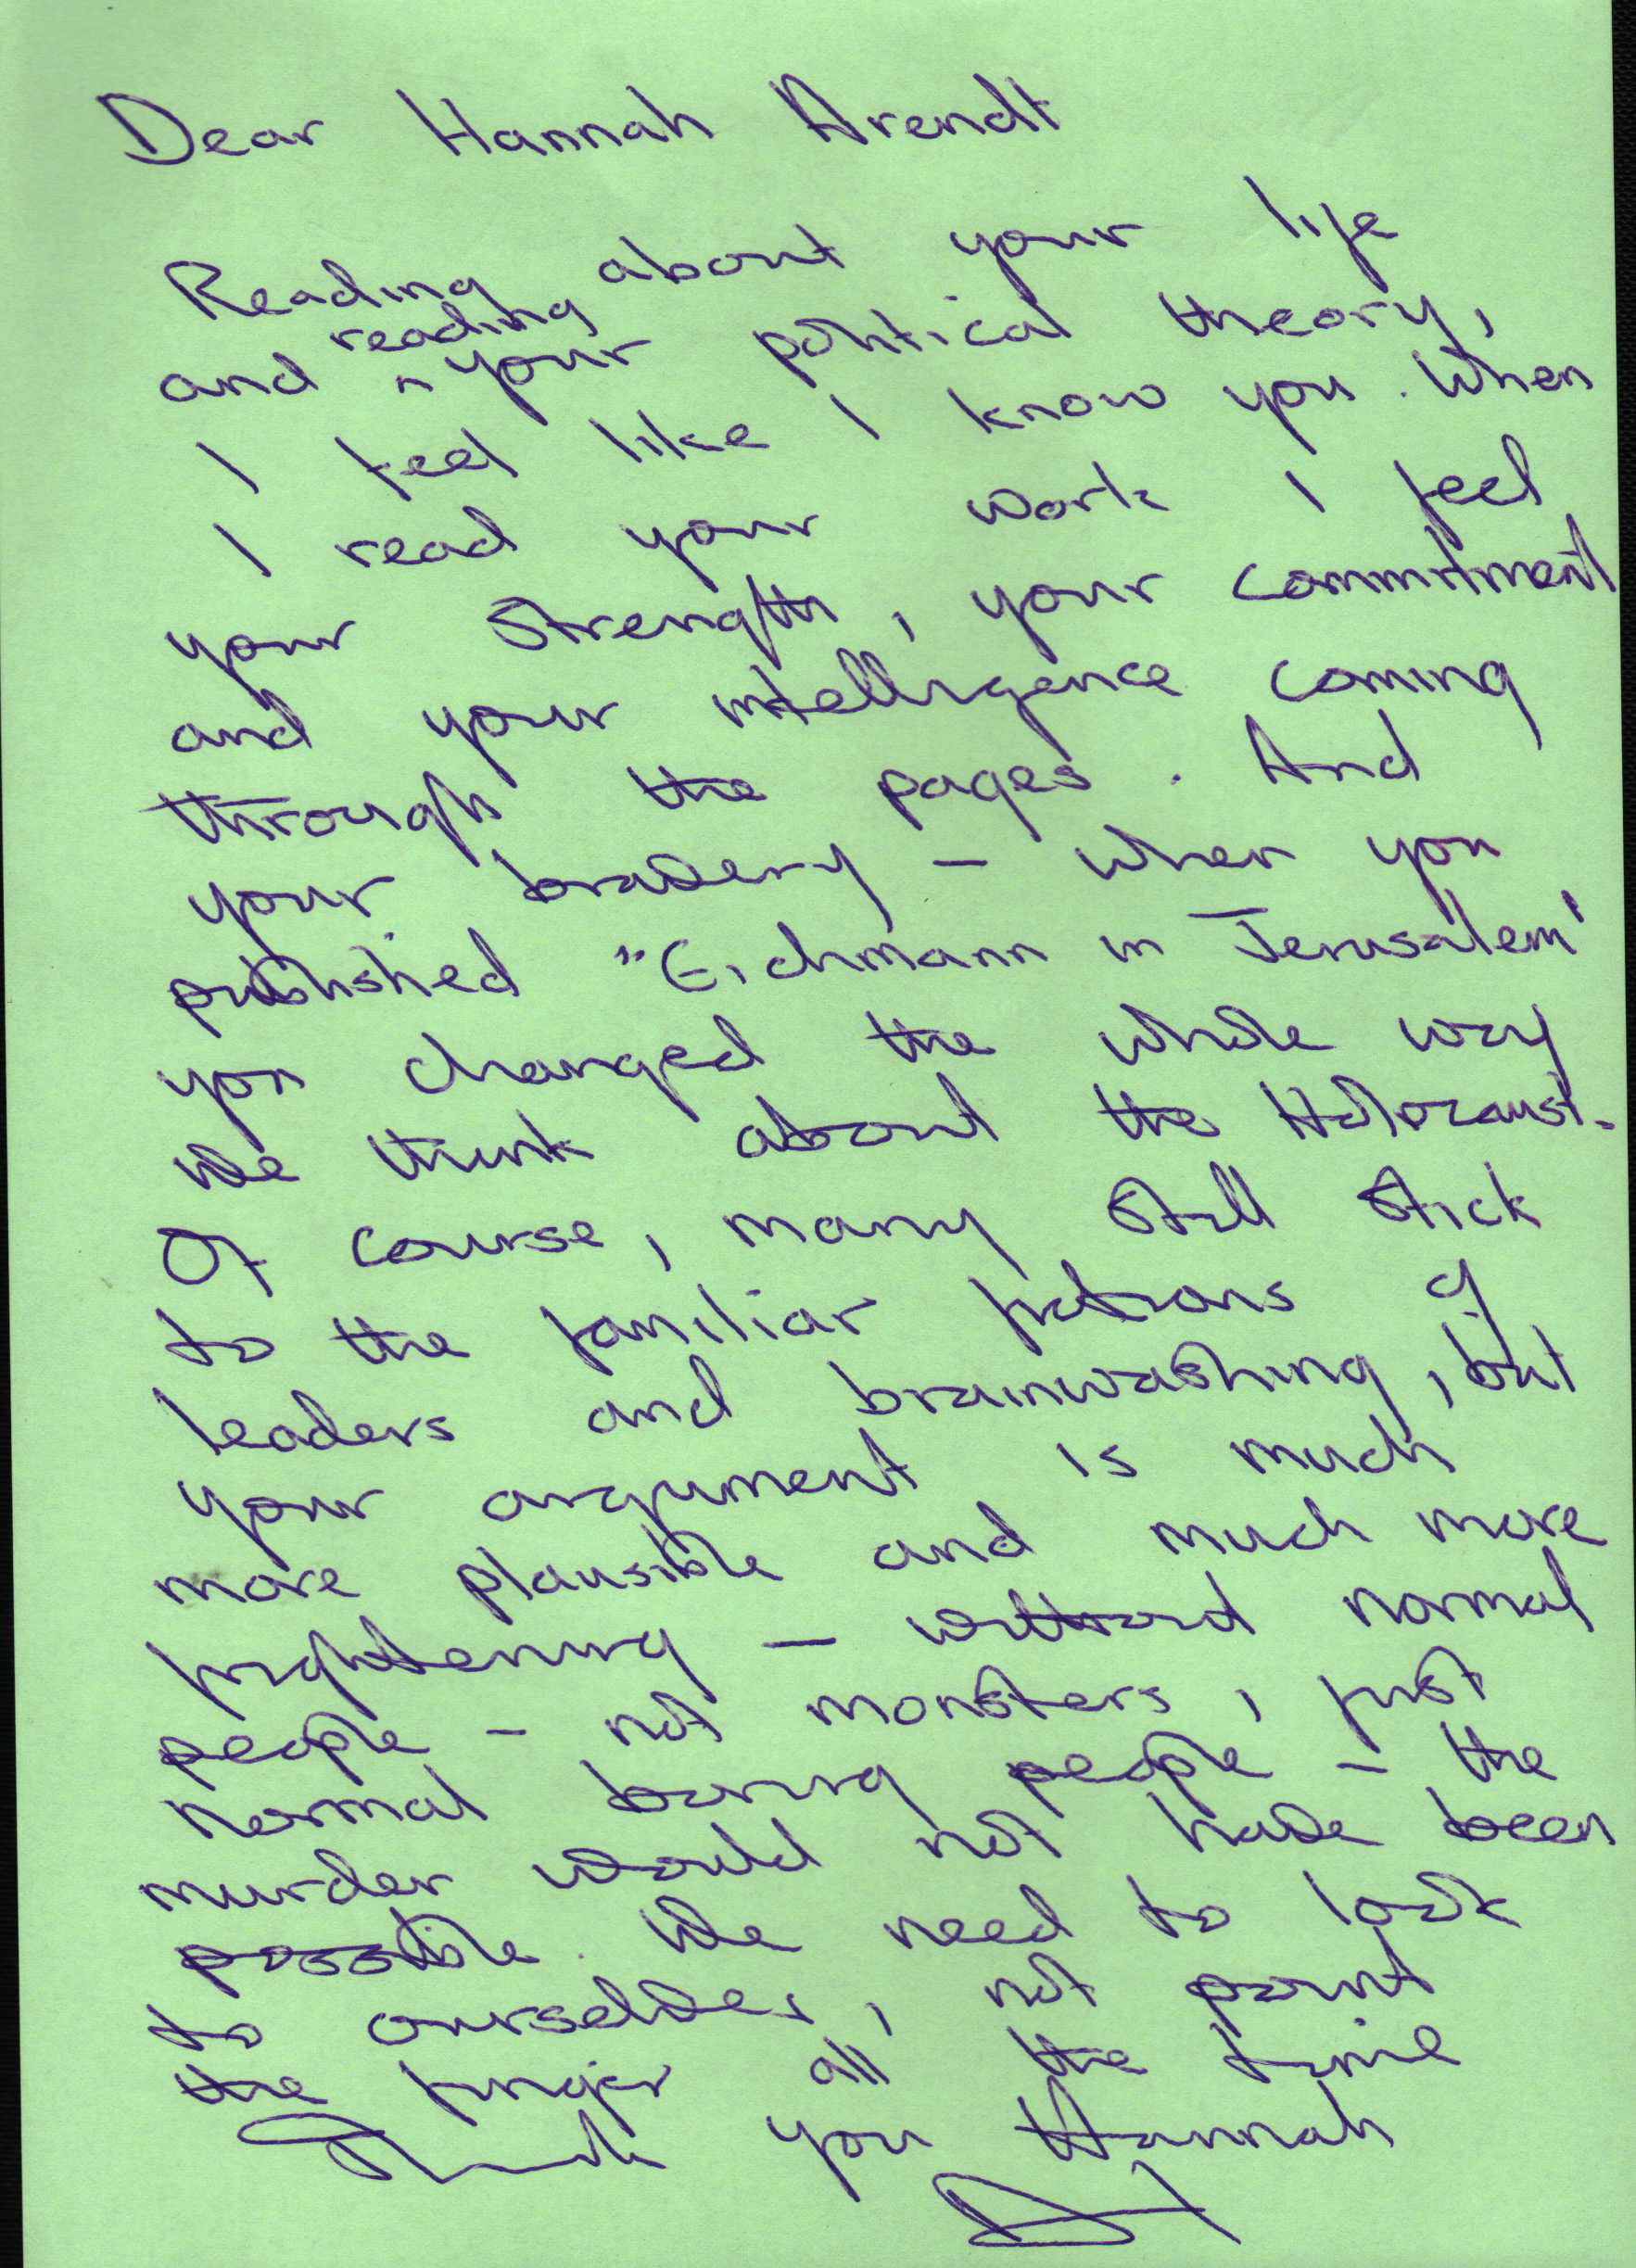 Dear Hannah Arendt
Reading about your life
and ^ reading your political theory,
I feel like I know you. When
I read your work I feel
your strength, your commitment
and your intelligence coming
through the pages. And
your bravery - when you
published "Eichmann in Jerusalem'
you changed the whole way
we think about the Holocaust.
Of course, many still stick
to the familiar fictions of
leaders and brainwashing, but
your argument is much
more plausible and much more
frightening - without normal
people - not monsters, just
normal boring people - the
murder would not have been
possible. We need to look
to ourselves, not point
the finger all the time
Thank you Hannah